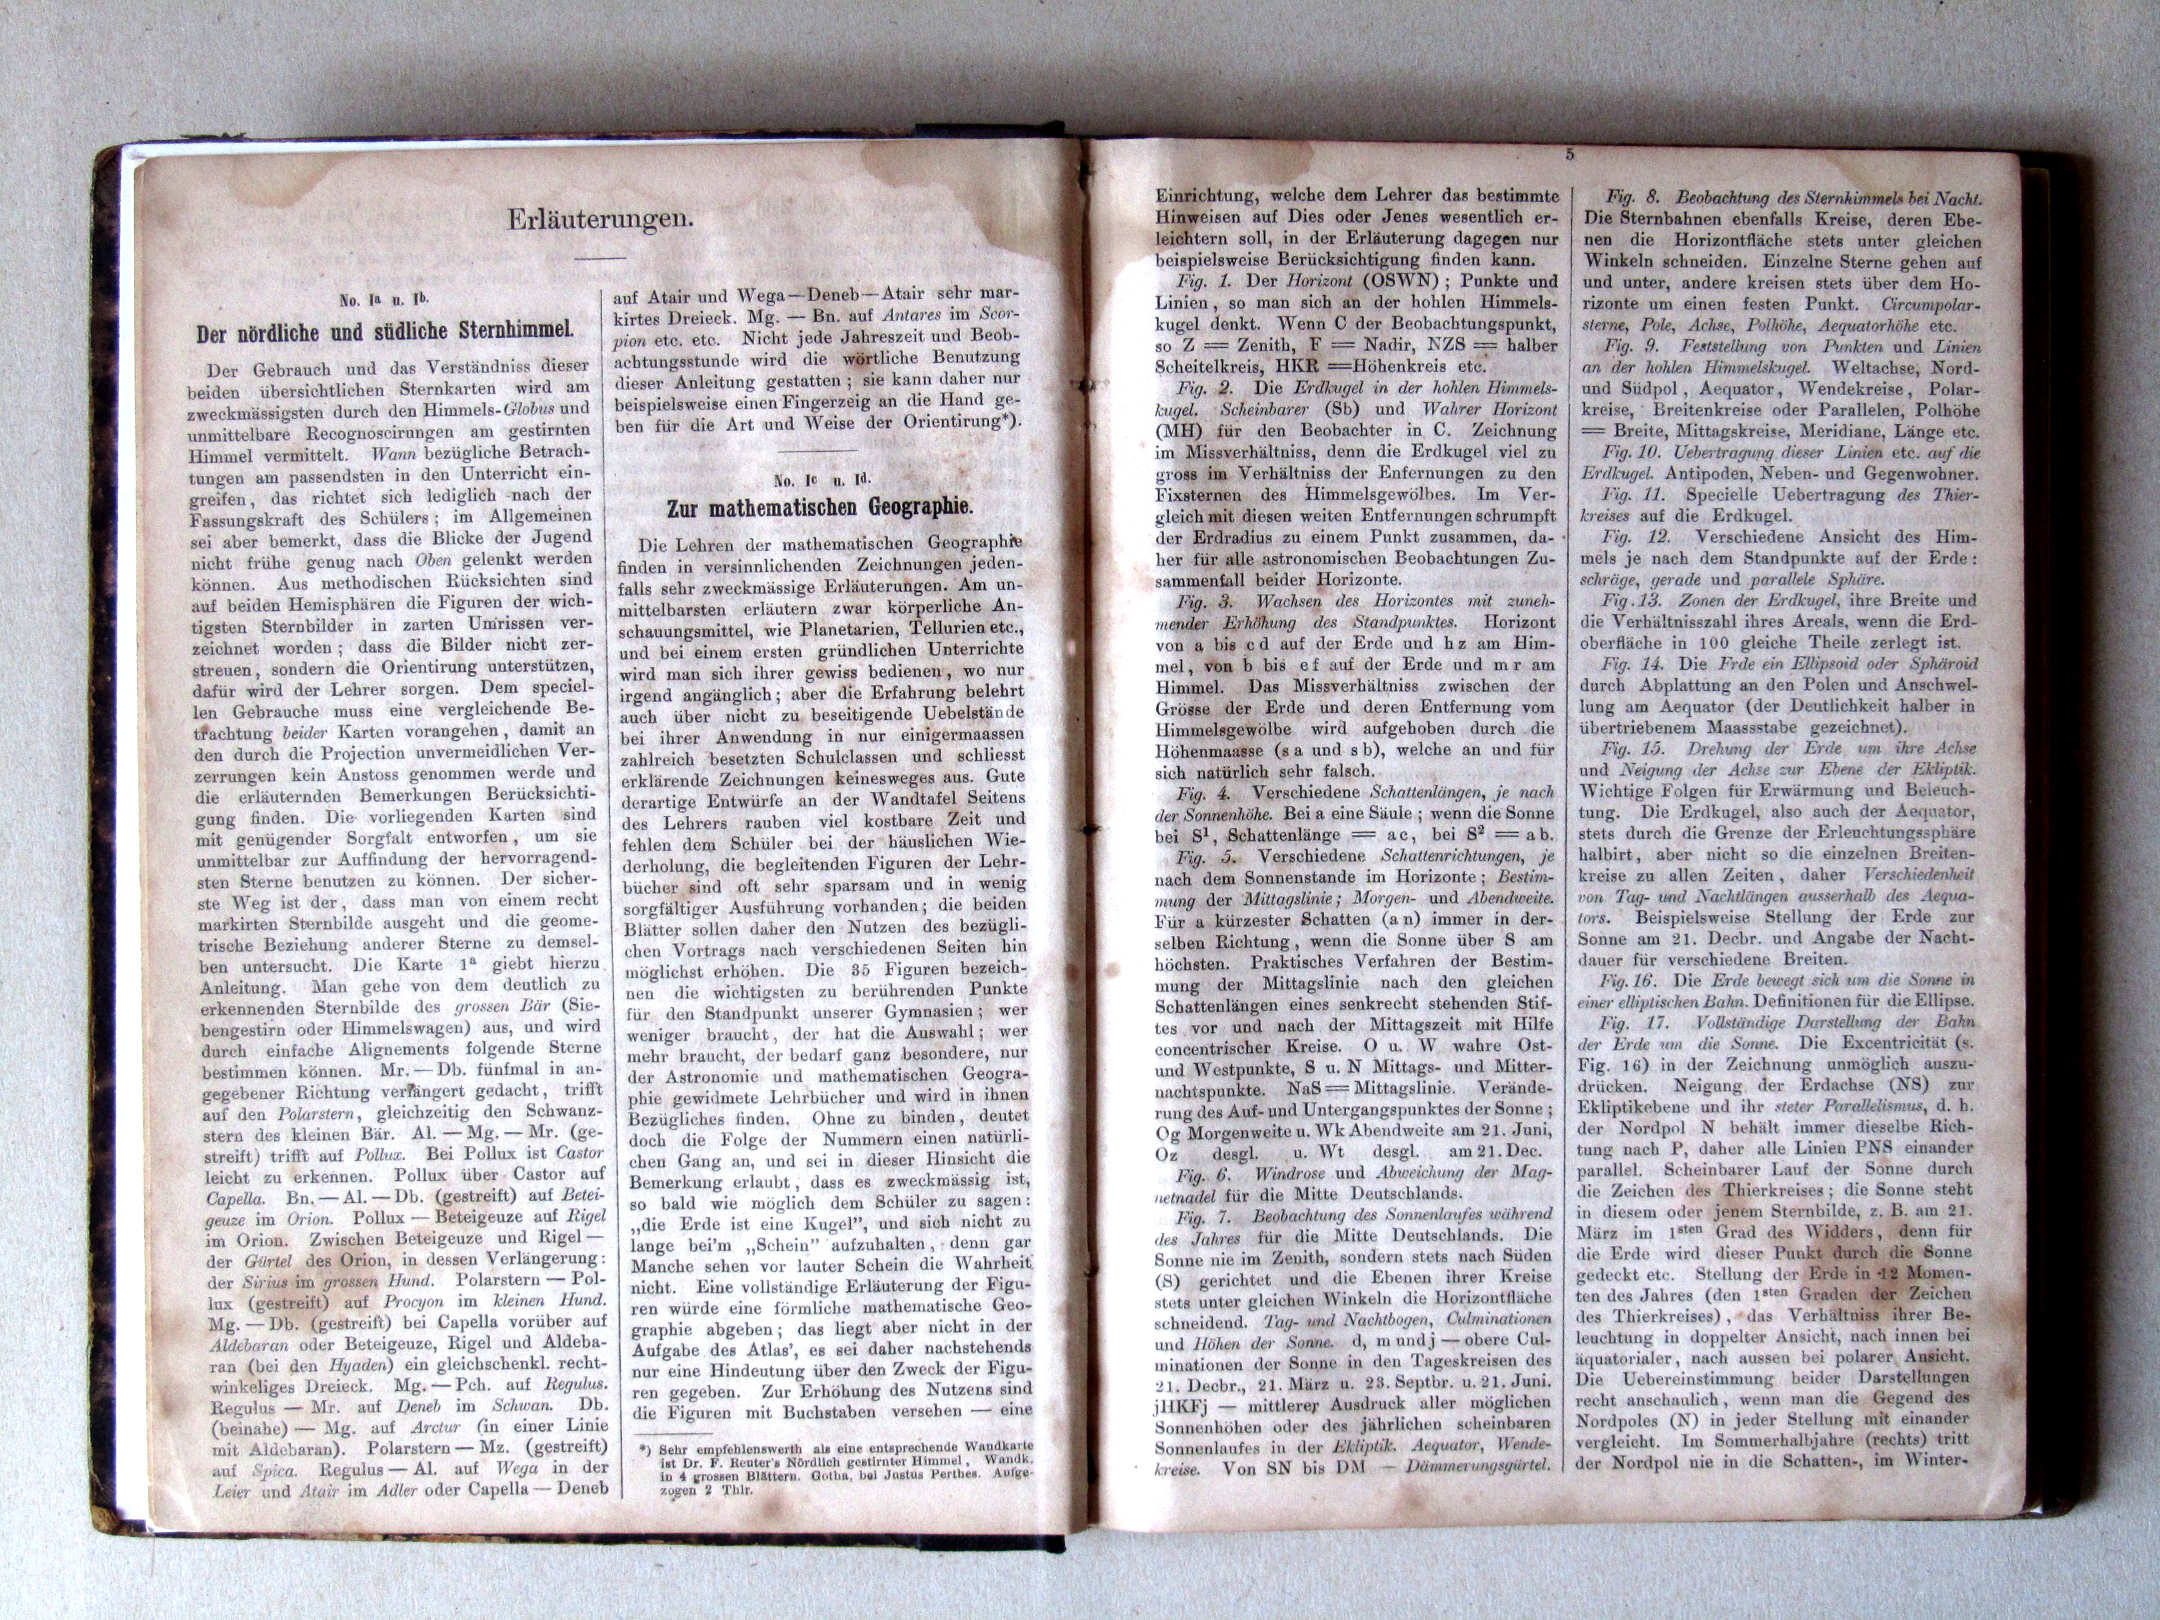 Erläuterungen.
No. Ia u. Ib.
Der nördliche und südliche Sternhimmel.
Der Gebrauch und das Verständniss dieser
beiden übersichtlichen Sternkarten wird am
zweckmässigsten durch den Himmels-Globus und
unmittelbare Recognoscirungen am gestirnten
Himmel vermittelt. Wann bezügliche Betrach-
tungen am passendsten in den Unterricht ein-
greifen, das richtet sich lediglich nach der
Fassungskraft des Schülers; im Allgemeinen
sei aber bemerkt, dass die Blicke der Jugend
nicht frühe genug nach Oben gelenkt werden
können. Aus methodischen Rücksichten sind
auf beiden Hemisphären die Figuren der wich-
tigsten Sternbilder in zarten Umrissen ver-
zeichnet worden; dass die Bilder nicht zer-
streuen, sondern die Orientirung unterstützen,
dafür wird der Lehrer sorgen. Dem speciel-
len Gebrauche muss eine vergleichende Be-
trachtung beider Karten vorangehen, damit an
den durch die Projection unvermeidlichen Ver-
zerrungen kein Anstoss genommen werde und
die erläuternden Bemerkungen Berücksichti-
gung finden. Die vorliegenden Karten sind
mit genügender Sorgfalt entworfen, um sie
unmittelbar zur Auffindung der hervorragend-
sten Sterne benutzen zu können. Der sicher-
ste Weg ist der, dass man von einem recht
markirten Sternbilde ausgeht und die geome-
trische Beziehung anderer Sterne zu demsel-
ben untersucht. Die Karte 1a giebt hierzu
Anleitung. Man gehe von dem deutlich zu
erkennenden Sternbilde des grossen Bär (Sie-
bengestirn oder Himmelswagen) aus, und wird
durch einfache Alignements folgende Sterne
bestimmen können. Mr. — Db. fünfmal in an-
gegebener Richtung verlängert gedacht, trifft
auf den Polarstern, gleichzeitig den Schwanz-
stern des kleinen Bär. Al. — Mg. — Mr. (ge-
streift) trifft auf Pollux. Bei Pollux ist Castor
leicht zu erkennen. Pollux über Castor auf
Capella. Bn. — Al. — Db. (gestreift) auf Betei-
geuze im Orion. Pollux — Beteigeuze auf Rigel
im Orion. Zwischen Beteigeuze und Rigel —
der Gürtel des Orion, in dessen Verlängerung:
der Sirius im grossen Hund. Polarstern — Pol-
lux (gestreift) auf Procyon im kleinen Hund.
Mg. — Db. (gestreift) bei Capella vorüber auf
Aldebaran oder Beteigeuze, Rigel und Aldeba-
ran (bei den Hyaden) ein gleichschenkl. recht-
winkeliges Dreieck. Mg. — Pch. auf Regulus.
Regulus — Mr. auf Deneb im Schwan. Db.
(beinahe) — Mg. auf Arctur (in einer Linie
mit Aldebaran). Polarstern — Mz. (gestreift)
auf Spica. Regulus — Al. auf Wega in der
Leier und Atair im Adler oder Capella — Deneb
auf Atair und Wega—Deneb—Atair sehr mar-
kirtes Dreieck. Mg. — Bn. auf Antares im Scor-
pion etc. etc. Nicht jede Jahreszeit und Beob-
achtungsstunde wird die wörtliche Benutzung
dieser Anleitung gestatten; sie kann daher nur
beispielsweise einen Fingerzeig an die Hand ge-
ben für die Art und Weise der Orientirung*).
No. Ic u. Id.
Zur mathematischen Geographie.
Die Lehren der mathematischen Geographie
finden in versinnlichenden Zeichnungen jeden-
falls sehr zweckmässige Erläuterungen. Am un-
mittelbarsten erläutern zwar körperliche An-
schauungsmittel, wie Planetarien, Tellurien etc.,
und bei einem ersten gründlichen Unterrichte
wird man sich ihrer gewiss bedienen, wo nur
irgend angänglich; aber die Erfahrung belehrt
auch über nicht zu beseitigende Uebelstände
bei ihrer Anwendung in nur einigermaassen
zahlreich besetzten Schulclassen und schliesst
erklärende Zeichnungen keinesweges aus. Gute
derartige Entwürfe an der Wandtafel Seitens
des Lehrers rauben viel kostbare Zeit und
fehlen dem Schüler bei der häuslichen Wie-
derholung, die begleitenden Figuren der Lehr-
bücher sind oft sehr sparsam und in wenig
sorgfältiger Ausführung vorhanden; die beiden
Blätter sollen daher den Nutzen des bezügli-
chen Vortrags nach verschiedenen Seiten hin
möglichst erhöhen. Die 35 Figuren bezeich-
nen die wichtigsten zu berührenden Punkte
für den Standpunkt unserer Gymnasien; wer
weniger braucht, der hat die Auswahl; wer
mehr braucht, der bedarf ganz besondere, nur
der Astronomie und mathematischen Geogra-
phie gewidmete Lehrbücher und wird in ihnen
Bezügliches finden. Ohne zu binden, deutet
doch die Folge der Nummern einen natürli-
chen Gang an, und sei in dieser Hinsicht die
Bemerkung erlaubt, dass es zweckmässig ist,
so bald wie möglich dem Schüler zu sagen:
„die Erde ist eine Kugel”, und sich nicht zu
lange bei'm „Schein” aufzuhalten, denn gar
Manche sehen vor lauter Schein die Wahrheit
nicht. Eine vollständige Erläuterung der Figu-
ren würde eine förmliche mathematische Geo-
graphie abgeben; das liegt aber nicht in der
Aufgabe des Atlas', es sei daher nachstehends
nur eine Hindeutung über den Zweck der Figu-
ren gegeben. Zur Erhöhung des Nutzens sind
die Figuren mit Buchstaben versehen — eine
*) Sehr empfehlenswerth als eine entsprechende Wandkarte
ist Dr. F. Reuter's Nördlich gestirnter Himmel, Wandk.
in 4 grossen Blättern. Gotha, bei Justus Perthes. Aufge-
zogen 2 Thlr.
5
Einrichtung, welche dem Lehrer das bestimmte
Hinweisen auf Dies oder Jenes wesentlich er-
leichtern soll, in der Erläuterung dagegen nur
beispielsweise Berücksichtigung finden kann.
Fig. 1. Der Horizont (OSWN); Punkte und
Linien, so man sich an der hohlen Himmels-
kugel denkt. Wenn C der Beobachtungspunkt,
so Z = Zenith, F = Nadir, NZS = halber
Scheitelkreis, HKR = Höhenkreis etc.
Fig. 2. Die Erdkugel in der hohlen Himmels-
kugel. Scheinbarer (Sb) und Wahrer Horizont
(MH) für den Beobachter in C. Zeichnung
im Missverhältniss, denn die Erdkugel viel zu
gross im Verhältniss der Enfernungen zu den
Fixsternen des Himmelsgewölbes. Im Ver-
gleich mit diesen weiten Entfernungen schrumpft
der Erdradius zu einem Punkt zusammen, da-
her für alle astronomischen Beobachtungen Zu-
sammenfall beider Horizonte.
Fig. 3. Wachsen des Horizontes mit zuneh-
mender Erhöhung des Standpunktes. Horizont
von a bis cd auf der Erde und hz am Him-
mel, von b bis ef auf der Erde und mr am
Himmel. Das Missverhältniss zwischen der
Grösse der Erde und deren Entfernung vom
Himmelsgewölbe wird aufgehoben durch die
Höhenmaasse (sa und sb), welche an und für
sich natürlich sehr falsch.
Fig. 4. Verschiedene Schattenlängen, je nach
der Sonnenhöhe. Bei a eine Säule; wenn die Sonne
bei S1, Schattenlänge = ac, bei S2 = ab.
Fig. 5. Verschiedene Schattenrichtungen, je
nach dem Sonnenstande im Horizonte; Bestim-
mung der Mittagslinie; Morgen- und Abendweite.
Für a kürzester Schatten (an) immer in der-
selben Richtung, wenn die Sonne über S am
höchsten. Praktisches Verfahren der Bestim-
mung der Mittagslinie nach den gleichen
Schattenlängen eines senkrecht stehenden Stif-
tes vor und nach der Mittagszeit mit Hilfe
concentrischer Kreise. O u. W wahre Ost-
und Westpunkte, S u. N Mittags- und Mitter-
nachtspunkte. NaS = Mittagslinie. Verände-
rung des Auf- und Untergangspunktes der Sonne;
Og Morgenweite u. Wk Abendweite am 21. Juni,
Oz desgl. u. Wt desgl. am 21. Dec.
Fig. 6. Windrose und Abweichung der Mag-
netnadel für die Mitte Deutschlands.
Fig. 7. Beobachtung des Sonnenlaufes während
des Jahres für die Mitte Deutschlands. Die
Sonne nie im Zenith, sondern stets nach Süden
(S) gerichtet und die Ebenen ihrer Kreise
stets unter gleichen Winkeln die Horizontfläche
schneidend. Tag- und Nachtbogen, Culminationen
und Höhen der Sonne. d, m und j — obere Cul-
minationen der Sonne in den Tageskreisen des
21. Decbr., 21. März u. 23. Septbr. u. 21. Juni.
jHKFj — mittlerer Ausdruck aller möglichen
Sonnenhöhen oder des jährlichen scheinbaren
Sonnenlaufes in der Ekliptik. Aequator, Wende-
kreise. Von SN bis DM — Dämmerungsgürtel.
Fig. 8. Beobachtung des Sternhimmels bei Nacht.
Die Sternbahnen ebenfalls Kreise, deren Ebe-
nen die Horizontfläche stets unter gleichen
Winkeln schneiden. Einzelne Sterne gehen auf
und unter, andere kreisen stets über dem Ho-
rizonte um einen festen Punkt. Circumpolar-
sterne, Pole, Achse, Polhöhe, Aequatorhöhe etc.
Fig. 9. Feststellung von Punkten und Linien
an der hohlen Himmelskugel. Weltachse, Nord-
und Südpol, Aequator, Wendekreise, Polar-
kreise, Breitenkreise oder Parallelen, Polhöhe
= Breite, Mittagskreise, Meridiane, Länge etc.
Fig. 10. Uebertragung dieser Linien etc. auf die
Erdkugel. Antipoden, Neben- und Gegenwohner.
Fig. 11. Specielle Uebertragung des Thier-
kreises auf die Erdkugel.
Fig. 12. Verschiedene Ansicht des Him-
mels je nach dem Standpunkte auf der Erde:
schräge, gerade und parallele Sphäre.
Fig. 13. Zonen der Erdkugel, ihre Breite und
die Verhältnisszahl ihres Areals, wenn die Erd-
oberfläche in 100 gleiche Theile zerlegt ist.
Fig. 14. Die Erde ein Ellipsoid oder Sphäroid
durch Abplattung an den Polen und Anschwel-
lung am Aequator (der Deutlichkeit halber in
übertriebenem Maassstabe gezeichnet).
Fig. 15. Drehung der Erde um ihre Achse
und Neigung der Achse zur Ebene der Ekliptik.
Wichtige Folgen für Erwärmung und Beleuch-
tung. Die Erdkugel, also auch der Aequator,
stets durch die Grenze der Erleuchtungssphäre
halbirt, aber nicht so die einzelnen Breiten-
kreise zu allen Zeiten, daher Verschiedenheit
von Tag- und Nachtlängen ausserhalb des Aequa-
tors. Beispielsweise Stellung der Erde zur
Sonne am 21. Decbr. und Angabe der Nacht-
dauer für verschiedene Breiten.
Fig. 16. Die Erde bewegt sich um die Sonne in
einer elliptischen Bahn. Definitionen für die Ellipse.
Fig. 17. Vollständige Darstellung der Bahn
der Erde um die Sonne. Die Excentricität (s.
Fig. 16) in der Zeichnung unmöglich auszu-
drücken. Neigung der Erdachse (NS) zur
Ekliptikebene und ihr steter Parallelismus, d. h.
der Nordpol N behält immer dieselbe Rich-
tung nach P, daher alle Linien PNS einander
parallel. Scheinbarer Lauf der Sonne durch
die Zeichen des Thierkreises; die Sonne steht
in diesem oder jenem Sternbilde, z. B. am 21.
März im 1sten Grad des Widders, denn für
die Erde wird dieser Punkt durch die Sonne
gedeckt etc. Stellung der Erde in 12 Momen-
ten des Jahres (den 1sten Graden der Zeichen
des Thierkreises), das Verhältniss ihrer Be-
leuchtung in doppelter Ansicht, nach innen bei
äquatorialer, nach aussen bei polarer Ansicht.
Die Uebereinstimmung beider Darstellungen
recht anschaulich, wenn man die Gegend des
Nordpoles (N) in jeder Stellung mit einander
vergleicht. Im Sommerhalbjahre (rechts) tritt
der Nordpol nie in die Schatten-, im Winter-